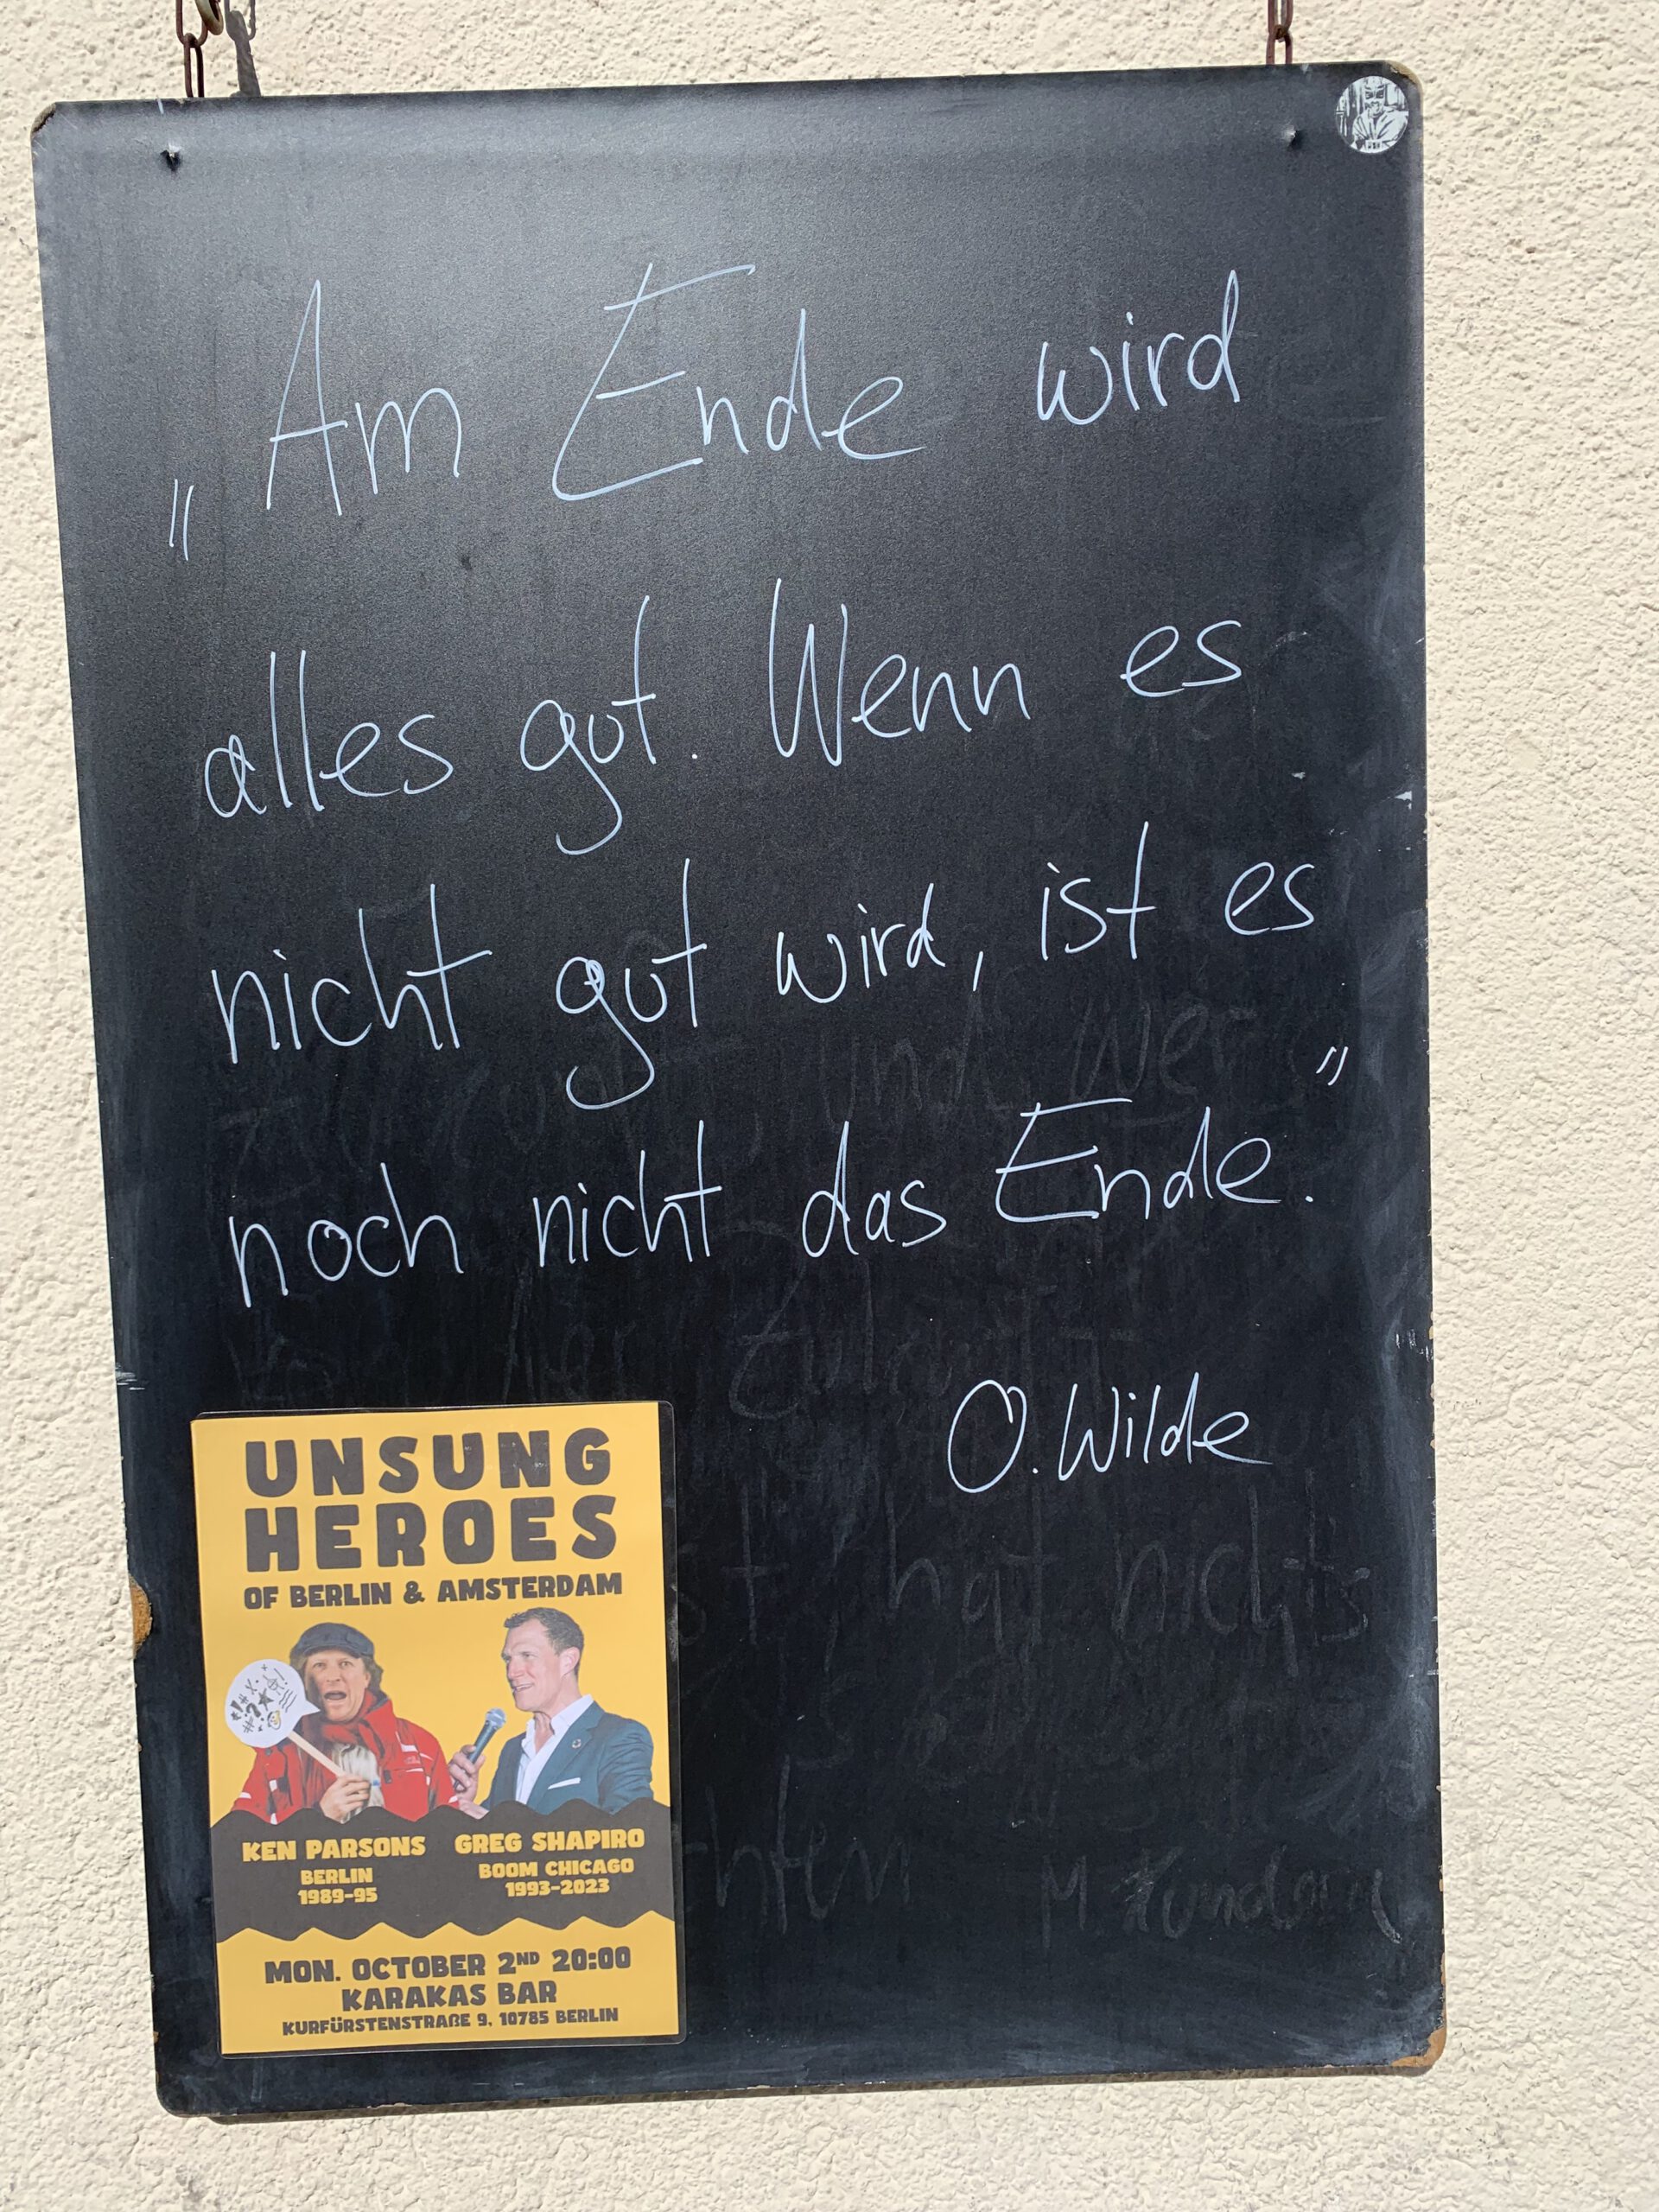 „Am Ende wird
alles gut. Wenn es
nicht gut wird, ist es
noch nicht das Ende."
O. Wilde
und wer
hat nichts
UNSUNG
HEROES
OF BERLIN & AMSTERDAM
KEN PARSONS
BERLIN
1989-95
GREG SHAPIRO
BOOM CHICAGO
1993-2023
MON. OCTOBER 2ND 20:00
KARAKAS BAR
KURFÜRSTENSTRAßE 9, 10785 BERLIN